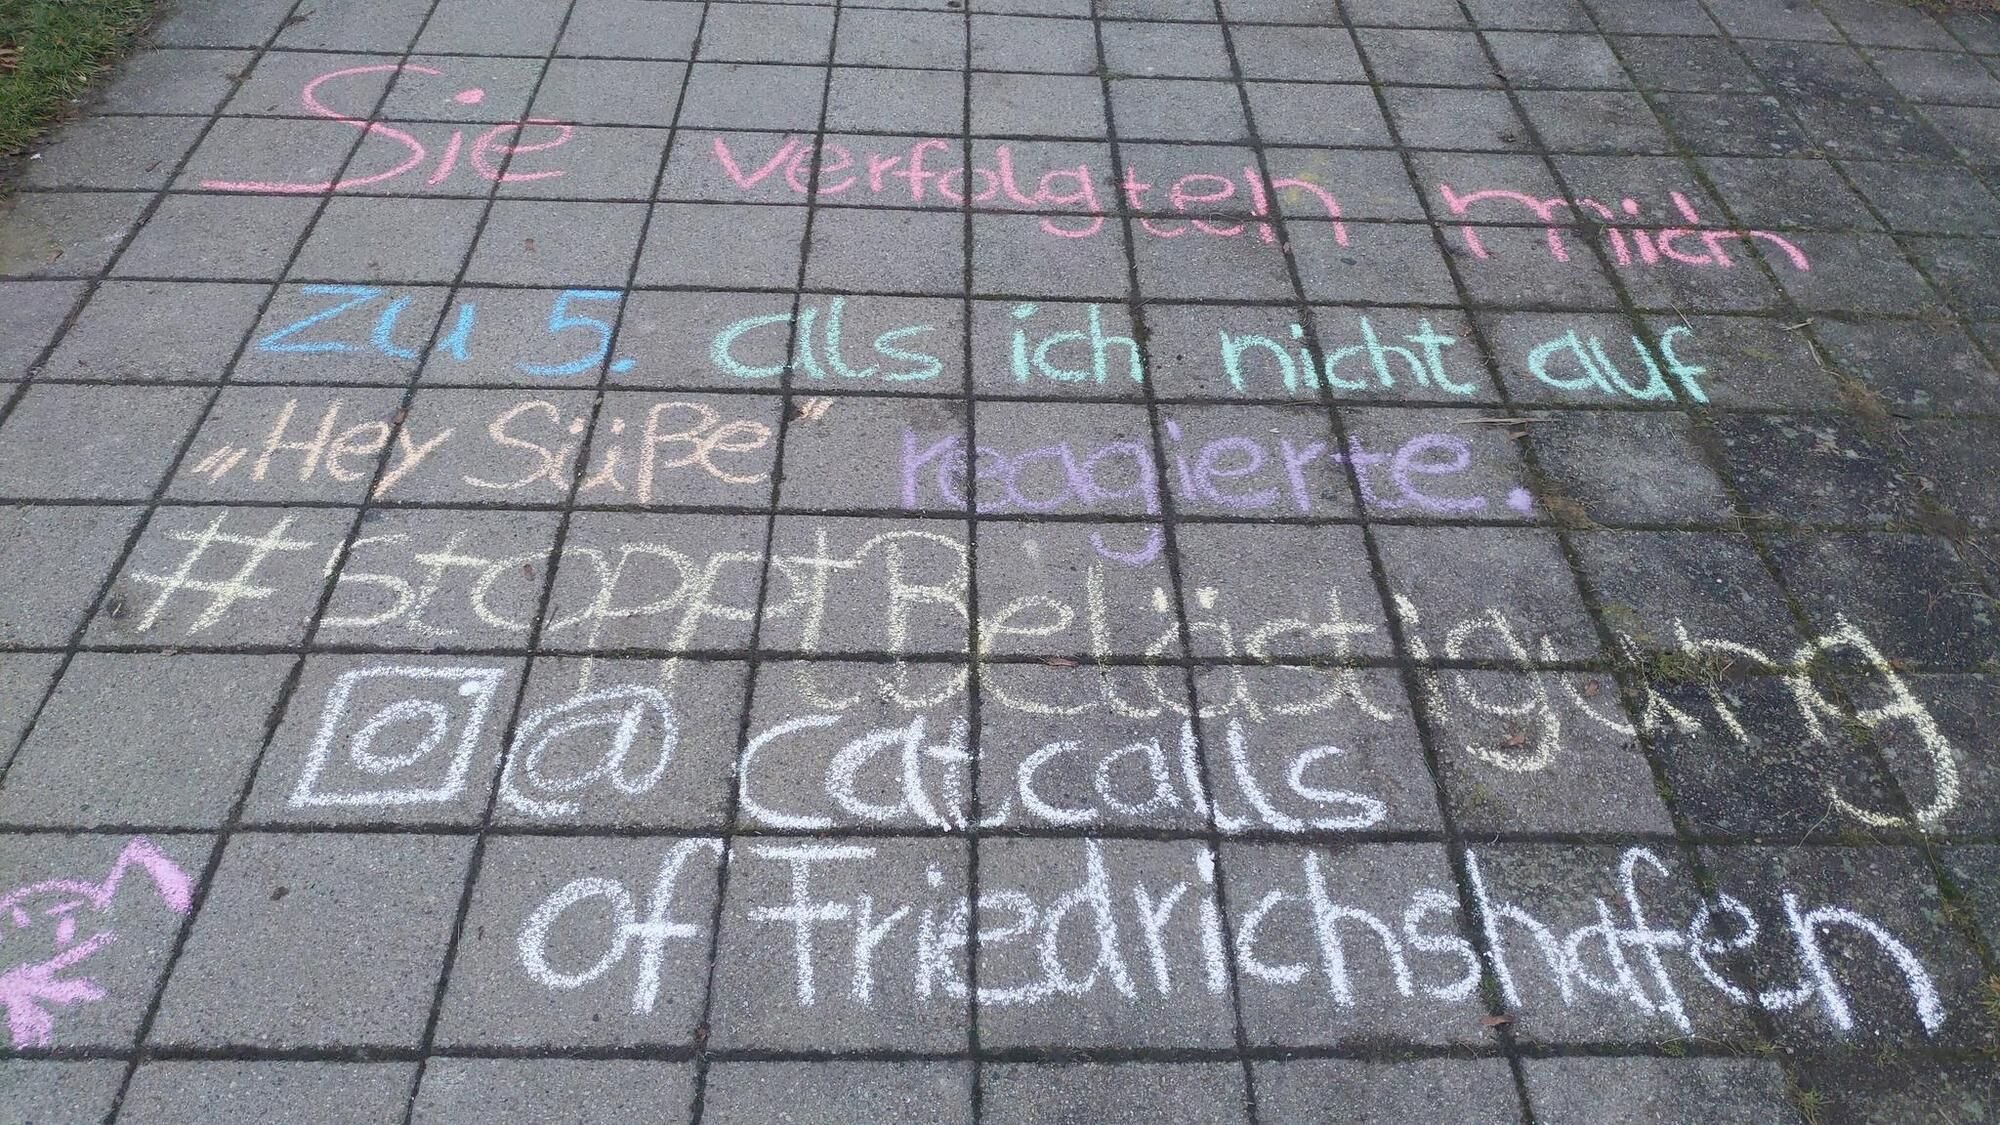 Sie verfolgten mich
zu 5. als ich nicht auf
„Hey Süße“ reagierte.
#StopptBelästigung
@catcalls
of Friedrichshafen